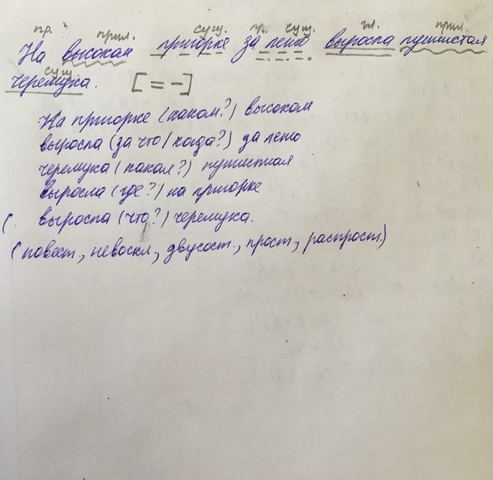 пр. прил. сущ. пр. сущ. гл. прил.
На высоком пригорке за лето выросла пушистая
сущ.
черёмуха. [= -]
На пригорке (каком?) высоком
выросла (за что/когда?) за лето
черёмуха (какая?) пушистая
выросла (где?) на пригорке
( выросла (что?) черёмуха.
(повест., невоскл., двусост., прост., распрост.)